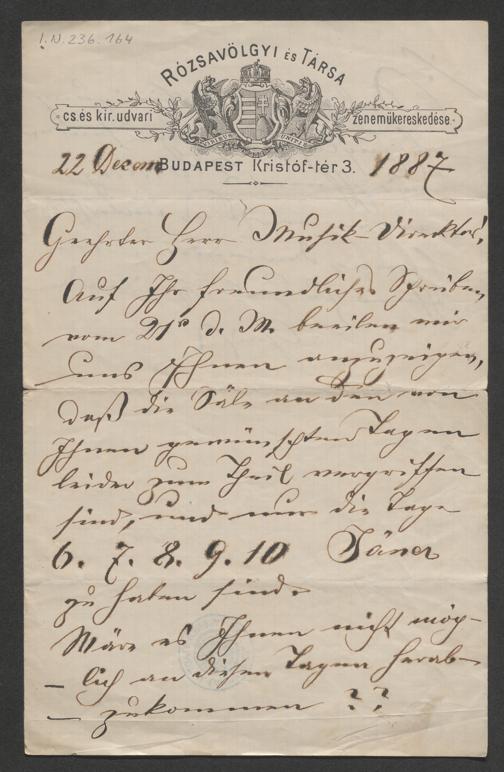 I.N. 236.164
RÓZSAVÖLGYI ÉS TÁRSA
cs. és kir. udvari
zeneműkereskedése.
VIRIBUS UNITIS
22 Decem BUDAPEST Kristóf-tér 3. 1887
Geehrter Herr Musik-Direktor!
Auf Ihr freundliches Schreiben
vom 21s d. M. beeilen wir
uns Ihnen anzuzeigen,
daß die Säle an den von
Ihnen gewünschten Tagen
leider zum Theil vergriffen
sind, und nur die Tage
6. 7. 8. 9. 10 Jäner
zu haben sind.
Wäre es Ihnen nicht mög-
lich an diesen Tagen herab-
zukommen ??